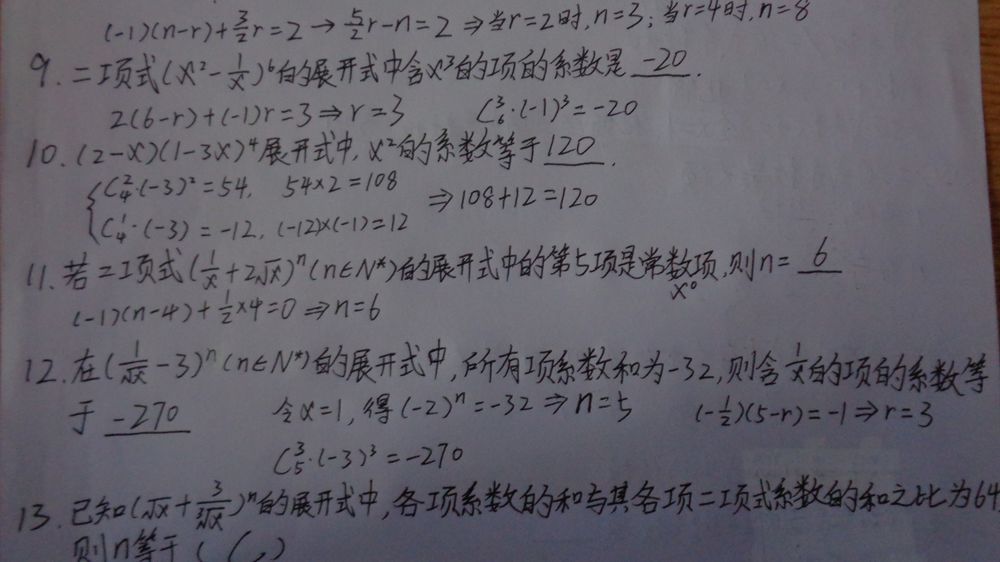 (-1)(n-r)+3/2r=2→5/2r-n=2⇒当r=2时,n=3;当r=4时,n=8
9.二项式(x²-1/x)⁶的展开式中含x³的项的系数是 -20 .
2(6-r)+(-1)r=3⇒r=3 C₆³·(-1)³=-20
10.(2-x)(1-3x)⁴展开式中,x²的系数等于 120 .
{C₄²·(-3)²=54, 54×2=108
C₄¹·(-3)=-12, (-12)×(-1)=12 ⇒108+12=120
11.若二项式(1/x+2√x)ⁿ(n∈N*)的展开式中的第5项是常数项,则n= 6
x⁰
(-1)(n-4)+1/2×4=0⇒n=6
12.在(1/√x-3)ⁿ(n∈N*)的展开式中,所有项系数和为-32,则含1/x的项的系数等
于 -270 令x=1,得(-2)ⁿ=-32⇒n=5 (-1/2)(5-r)=-1⇒r=3
C₅³·(-3)³=-270
13.已知(√x+3/∛x)ⁿ的展开式中,各项系数的和与其各项二项式系数的和之比为64,
则n等于(C)